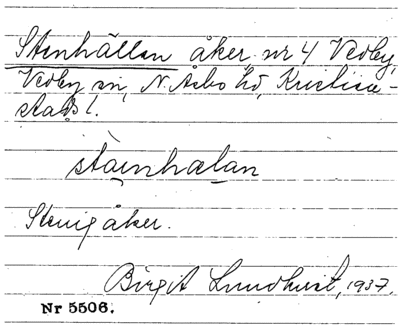 Stenhällan åker nr 4 Vedby,
Vedby sn, N. Åsbo hd, Kristian-
stads l.
stainhælan
Stenig åker.
Birgit Lundkvist, 1937.
Nr 5506.